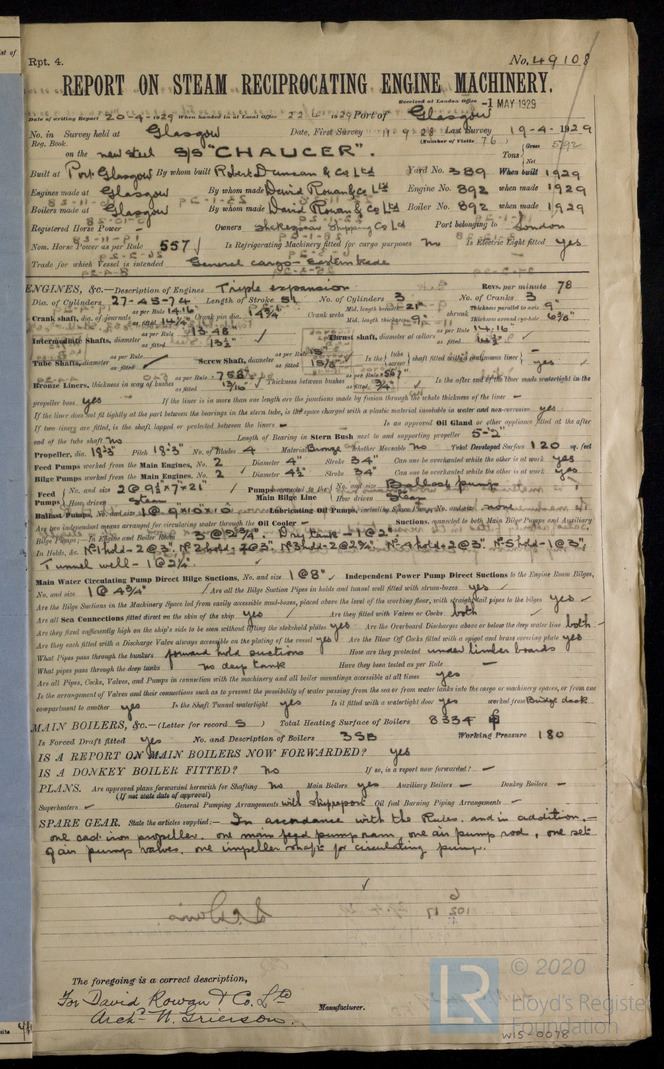 Rpt. 4.
No. 49108
REPORT ON STEAM RECIPROCATING ENGINE MACHINERY.
Received at London Office -1 MAY 1929
Date of writing Report 20-4-1929 When handed in at Local Office 1929 Port of Glasgow
No. in Survey held at Glasgow Date, First Survey Last Survey 19-4-1929
Reg. Book. (Number of Visits 76)
on the new steel S/S "CHAUCER". Tons Gross 5792 Net
Built at Port Glasgow By whom built Robert Duncan & Co Ltd Yard No. 389 When built 1929
Engines made at Glasgow By whom made David Rowan & Co Ltd Engine No. 892 when made 1929
Boilers made at Glasgow By whom made David Rowan & Co Ltd Boiler No. 892 when made 1929
Registered Horse Power Owners Shakespear Shipping Co Ltd Port belonging to London
Nom. Horse Power as per Rule 557 Is Refrigerating Machinery fitted for cargo purposes no Is Electric Light fitted yes
Trade for which Vessel is intended General cargo - Eastern trade
ENGINES, &c.—Description of Engines Triple expansion Revs. per minute 78
Dia. of Cylinders 27-45-74 Length of Stroke 51 No. of Cylinders 3 No. of Cranks 3
Crank shaft, dia. of journals as per Rule 14.16 as fitted 14¾" Crank pin dia. 14¾" Crank webs Mid. length breadth 21" Mid. length thickness 9" shrunk Thickness parallel to axis 9" Thickness around eye-hole 6⅝"
Intermediate Shafts, diameter as per Rule 13.48" as fitted 13½" Thrust shaft, diameter at collars as per Rule 14.16 as fitted
Tube Shafts, diameter as per Rule as fitted Screw Shaft, diameter as per Rule as fitted Is the tube screw shaft fitted with a continuous liner yes
Bronze Liners, thickness in way of bushes as per Rule as fitted 13/16" Thickness between bushes as per Rule as fitted ¾" Is the after end of the liner made watertight in the
propeller boss yes If the liner is in more than one length are the junctions made by fusion through the whole thickness of the liner -
If the liner does not fit tightly at the part between the bearings in the stern tube, is the space charged with a plastic material insoluble in water and non-corrosive yes
If two liners are fitted, is the shaft lapped or protected between the liners - Is an approved Oil Gland or other appliance fitted at the after
end of the tube shaft no Length of Bearing in Stern Bush next to and supporting propeller 5'-2"
Propeller, dia. 18'3" Pitch 18'3" No. of Blades 4 Material Bronze whether Moveable no Total Developed Surface 120 sq. feet
Feed Pumps worked from the Main Engines, No. 2 Diameter 4" Stroke 34" Can one be overhauled while the other is at work yes
Bilge Pumps worked from the Main Engines, No. 2 Diameter 4½" Stroke 34" Can one be overhauled while the other is at work yes
Feed Pumps No. and size 2@9½"x7"x21" How driven Steam Pumps connected to the Main Bilge Line No. and size Ballast pump How driven Steam
Ballast Pumps, No. and size 1@9x10x10 Lubricating Oil Pumps, including Spare Pump, No. and size none
Are two independent means arranged for circulating water through the Oil Cooler - Suctions, connected to both Main Bilge Pumps and Auxiliary
Bilge Pumps:—In Engine and Boiler Room 3@2¾". Dry tank - 1@2"
In Holds, &c. Nº1 hold - 2@3". Nº2 hold - 2@3". Nº3 hold - 2@2½". Nº4 hold - 2@3". Nº5 hold - 1@3";
Tunnel well - 1@2½".
Main Water Circulating Pump Direct Bilge Suctions, No. and size 1@8" Independent Power Pump Direct Suctions to the Engine Room Bilges,
No. and size 1@4¾" Are all the Bilge Suction Pipes in holds and tunnel well fitted with strum-boxes yes
Are the Bilge Suctions in the Machinery Spaces led from easily accessible mud-boxes, placed above the level of the working floor, with straight tail pipes to the bilges yes
Are all Sea Connections fitted direct on the skin of the ship yes Are they fitted with Valves or Cocks both
Are they fixed sufficiently high on the ship's side to be seen without lifting the stokehold plates yes Are the Overboard Discharges above or below the deep water line both
Are they each fitted with a Discharge Valve always accessible on the plating of the vessel yes Are the Blow Off Cocks fitted with a spigot and brass covering plate yes
What Pipes pass through the bunkers forward hold suctions How are they protected under limber boards
What pipes pass through the deep tanks no deep tank Have they been tested as per Rule -
Are all Pipes, Cocks, Valves, and Pumps in connection with the machinery and all boiler mountings accessible at all times yes
Is the arrangement of Valves and their connections such as to prevent the possibility of water passing from the sea or from water tanks into the cargo or machinery spaces, or from one
compartment to another yes Is the Shaft Tunnel watertight yes Is it fitted with a watertight door yes worked from Bridge deck
MAIN BOILERS, &c.—(Letter for record S) Total Heating Surface of Boilers 8334
Is Forced Draft fitted yes No. and Description of Boilers 3SB Working Pressure 180
IS A REPORT ON MAIN BOILERS NOW FORWARDED? yes
IS A DONKEY BOILER FITTED? no If so, is a report now forwarded? -
PLANS. Are approved plans forwarded herewith for Shafting no Main Boilers yes Auxiliary Boilers - Donkey Boilers -
(If not state date of approval)
Superheaters - General Pumping Arrangements Oil fuel Burning Piping Arrangements -
SPARE GEAR. State the articles supplied:— In accordance with the Rules, and in addition,—
one cast iron propeller, one main feed pump ram, one air pump rod, one set
of air pump valves, one impeller shaft for circulating pump.
The foregoing is a correct description,
For David Rowan & Co. Ltd
Archd. W. Grierson. Manufacturer.
© 2020
LR
Lloyd's Register
Foundation
W15-0078